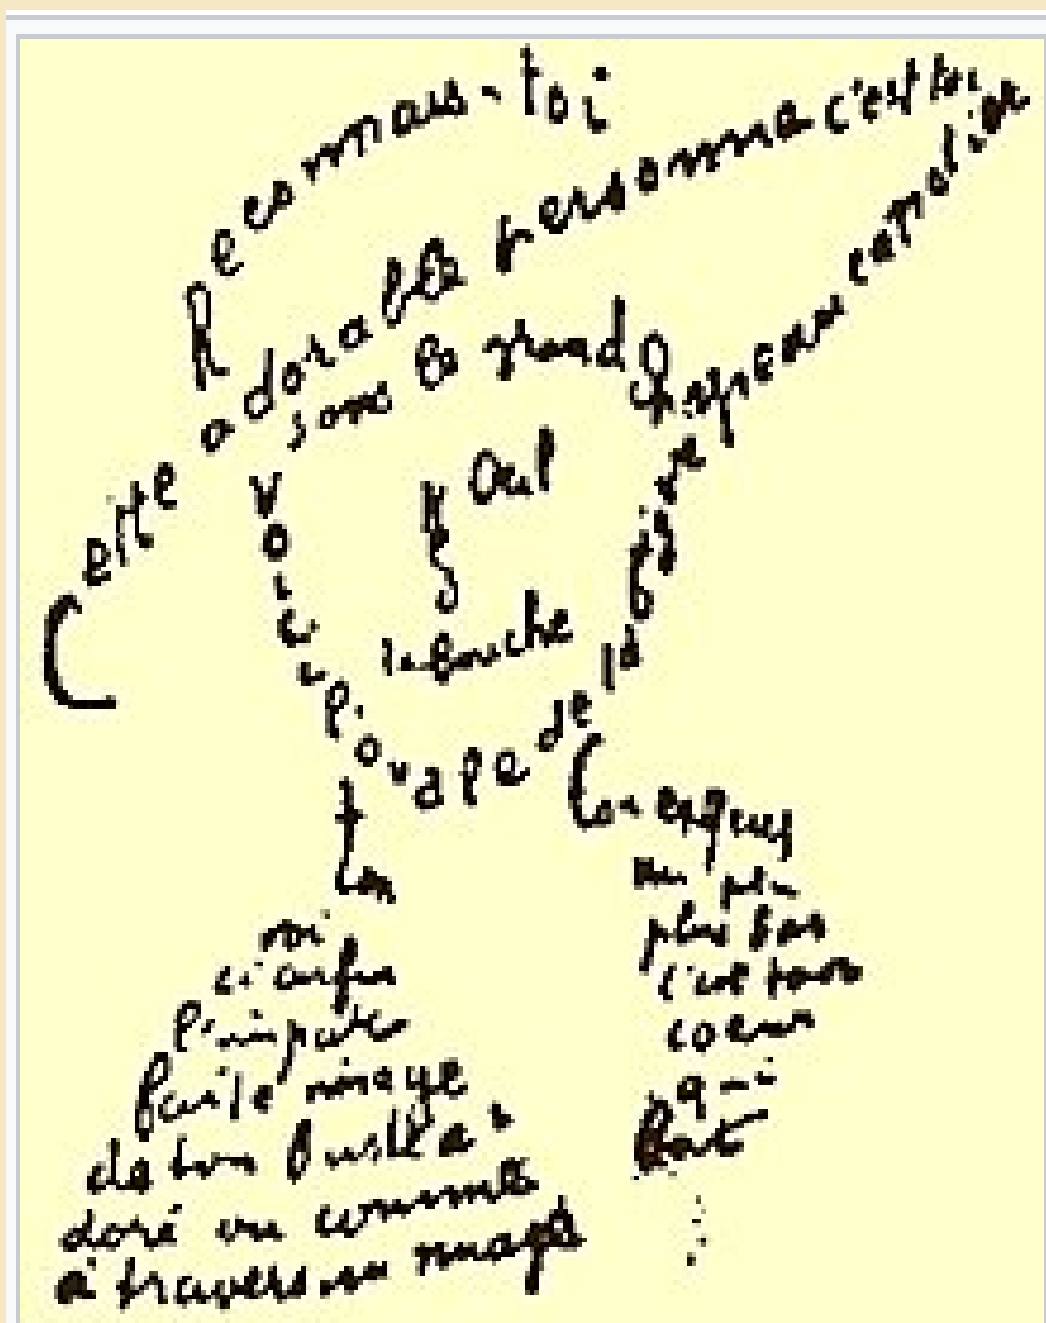 Reconnais-toi
Cette adorable personne c'est toi
sous le grand chapeau canotier
Œil
Nez
la bouche
Voici l'ovale de ta figure
Ton
Cou exquis
Voi
ci enfin
l'impar
faite image
de ton buste a
doré vu comme
à travers un nuage
un peu
plus bas
c'est ton
coeur
qui
bat